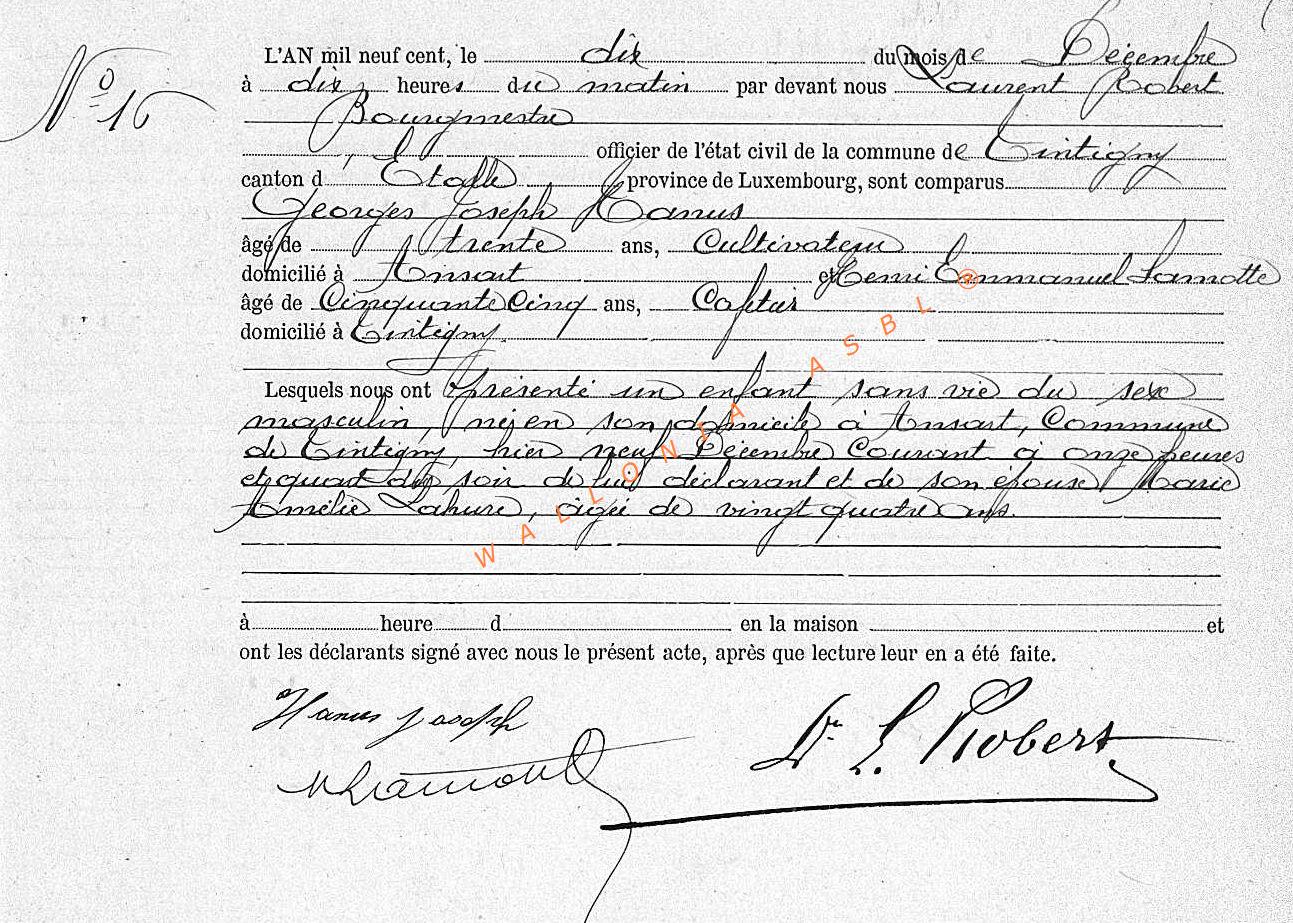 N° 16
L'AN mil neuf cent, le dix du mois de Décembre
à dix heures du matin par devant nous Laurent Robert
Bourgmestre
officier de l'état civil de la commune de Tintigny
canton d Etalle province de Luxembourg, sont comparus
Georges Joseph Hanus
âgé de trente ans, Cultivateur
domicilié à Ansart et Henri Emmanuel Lamotte
âgé de Cinquante Cinq ans, Cafetier
domicilié à Tintigny.
Lesquels nous ont présenté un enfant sans vie du sexe
masculin, né en son domicile à Ansart, Commune
de Tintigny, hier neuf Décembre Courant à onze heures
et quart du soir de lui déclarant et de son épouse Marie
Amélie Lahure, agée de vingt quatre ans.
à heure d en la maison et
ont les déclarants signé avec nous le présent acte, après que lecture leur en a été faite.
Hanus Joseph
Dr L. Robert
WALLONIA ASBL ®